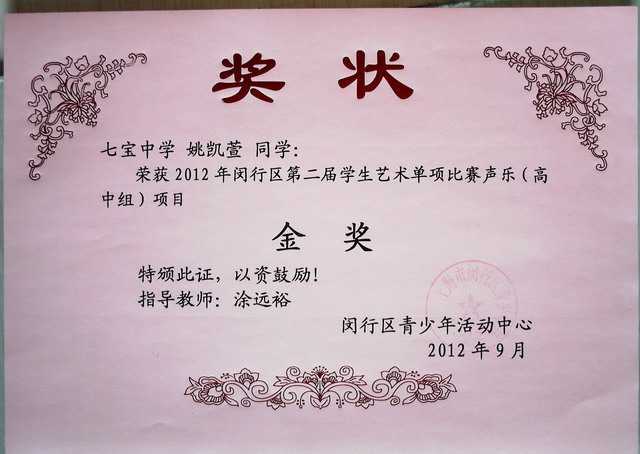 奖 状
七宝中学 姚凯萱 同学：
荣获 2012 年闵行区第二届学生艺术单项比赛声乐（高
中组）项目
金 奖
特颁此证，以资鼓励！
指导教师：涂远裕
闵行区青少年活动中心
2012 年 9 月